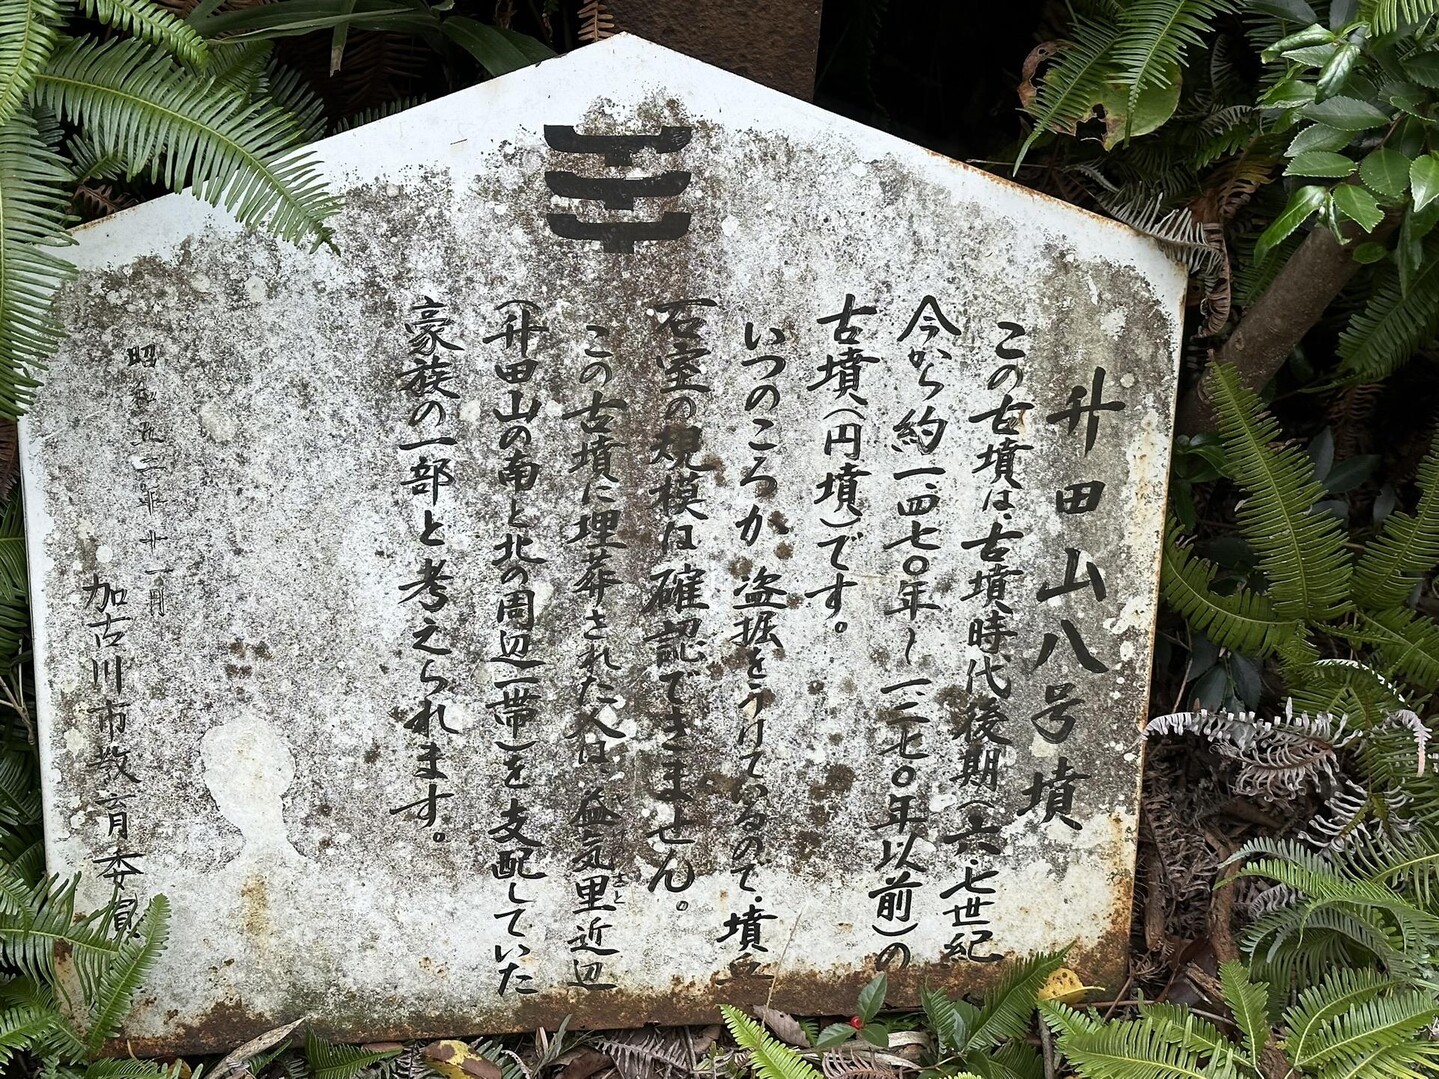 升田山八号墳
この古墳は、古墳時代後期(六・七世紀
今から約一、四七〇年〜一、二七〇年以前)の
古墳(円墳)です。
いつのころか、盗掘をうけているので、墳丘
石室の規模は確認できません。
この古墳に埋葬された人は、益気里近辺
さと
(升田山の南と北の周辺一帯)を支配していた
豪族の一部と考えられます。
昭和五二年十一月
加古川市教育委員